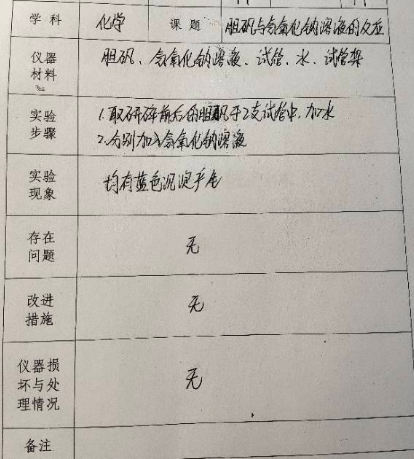 学科 化学 课题 胆矾与氢氧化钠溶液的反应
仪器
材料
胆矾、氢氧化钠溶液、试管、水、试管架
实验
步骤
1.取研碎前后的胆矾于2支试管中,加水
2.分别加入氢氧化钠溶液
实验
现象
均有蓝色沉淀产生
存在
问题
无
改进
措施
无
仪器损
坏与处
理情况
无
备注